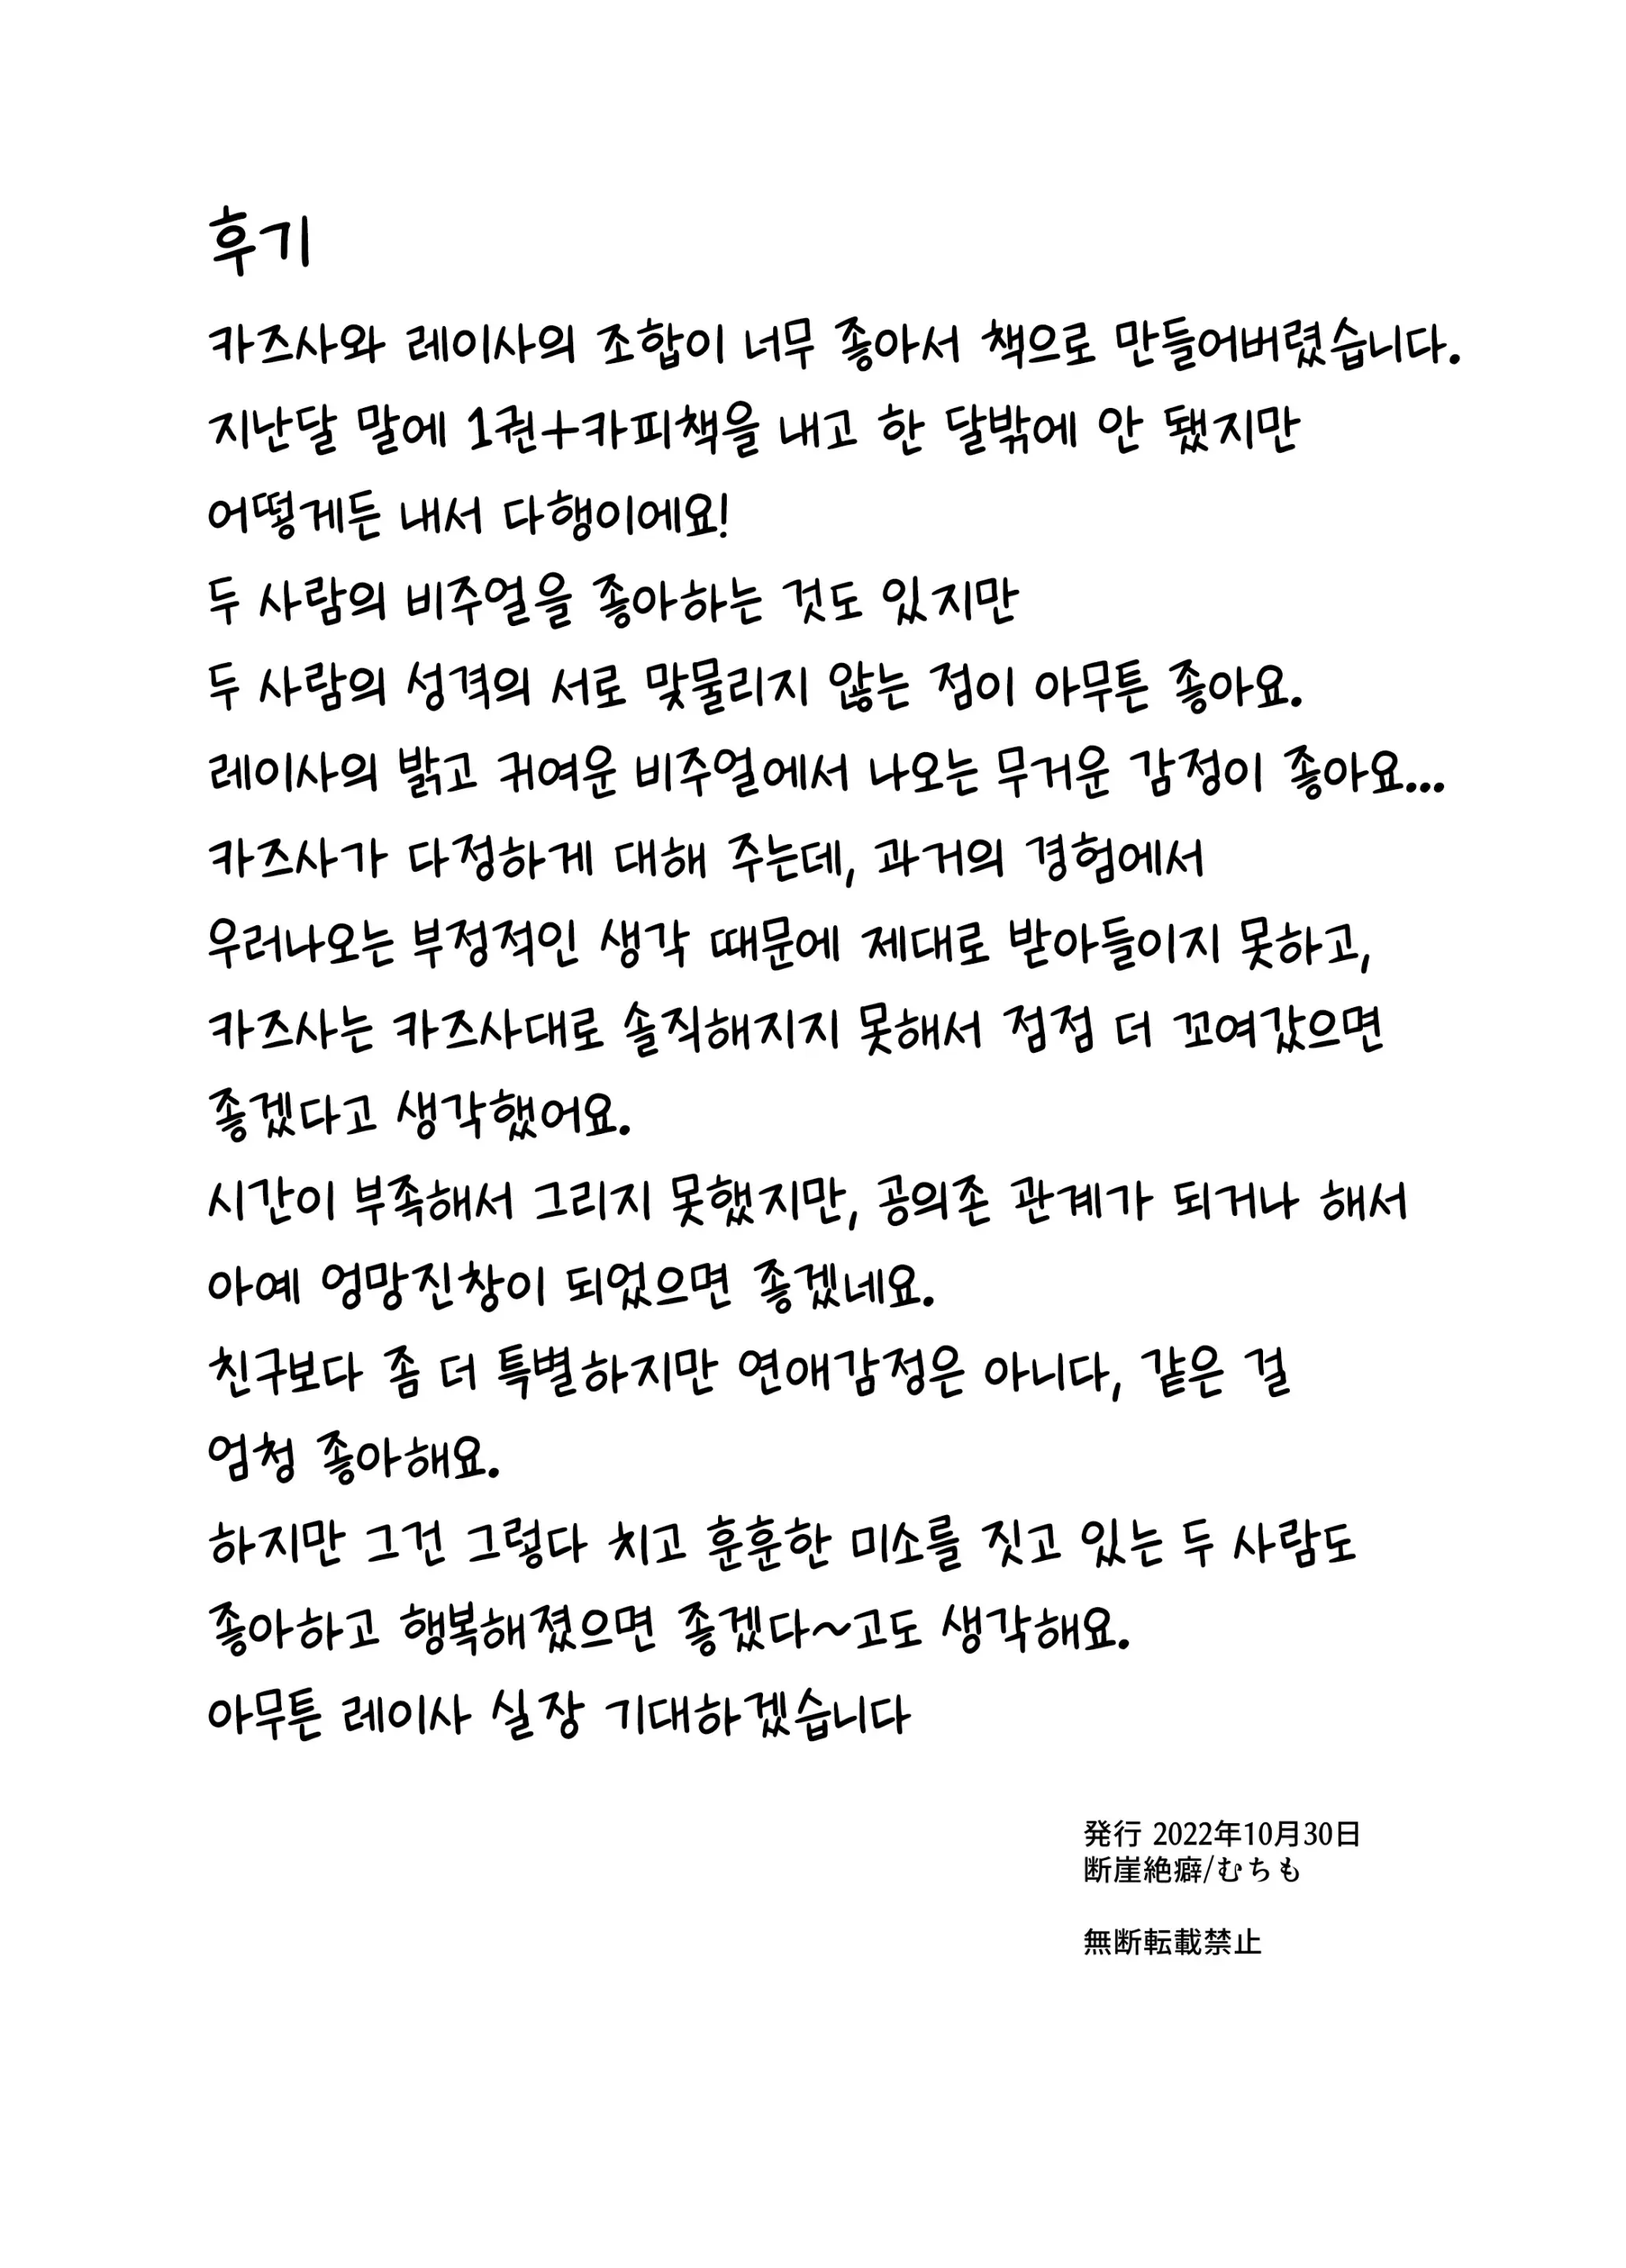 후기
카즈사와 레이사의 조합이 너무 좋아서 책으로 만들어버렸습니다.
지난달 말에 1권+카피책을 내고 한 달밖에 안 됐지만
어떻게든 내서 다행이에요!
두 사람의 비주얼을 좋아하는 것도 있지만
두 사람의 성격의 서로 맞물리지 않는 점이 아무튼 좋아요.
레이사의 밝고 귀여운 비주얼에서 나오는 무거운 감정이 좋아요...
카즈사가 다정하게 대해 주는데, 과거의 경험에서
우러나오는 부정적인 생각 때문에 제대로 받아들이지 못하고,
카즈사는 카즈사대로 솔직해지지 못해서 점점 더 꼬여갔으면
좋겠다고 생각했어요.
시간이 부족해서 그리지 못했지만, 공의존 관계가 되거나 해서
아예 엉망진창이 되었으면 좋겠네요.
친구보다 좀 더 특별하지만 연애감정은 아니다, 같은 걸
엄청 좋아해요.
하지만 그건 그렇다 치고 훈훈한 미소를 짓고 있는 두 사람도
좋아하고 행복해졌으면 좋겠다~고도 생각해요.
아무튼 레이사 실장 기대하겠습니다
発行 2022年10月30日
断崖絶癖/むちも
無断転載禁止